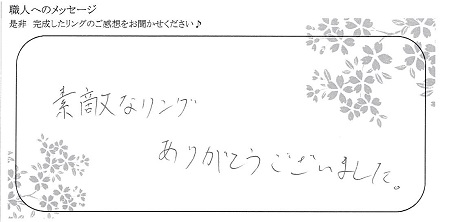 職人へのメッセージ
是非 完成したリングのご感想をお聞かせください♪
素敵なリング
ありがとうございました。